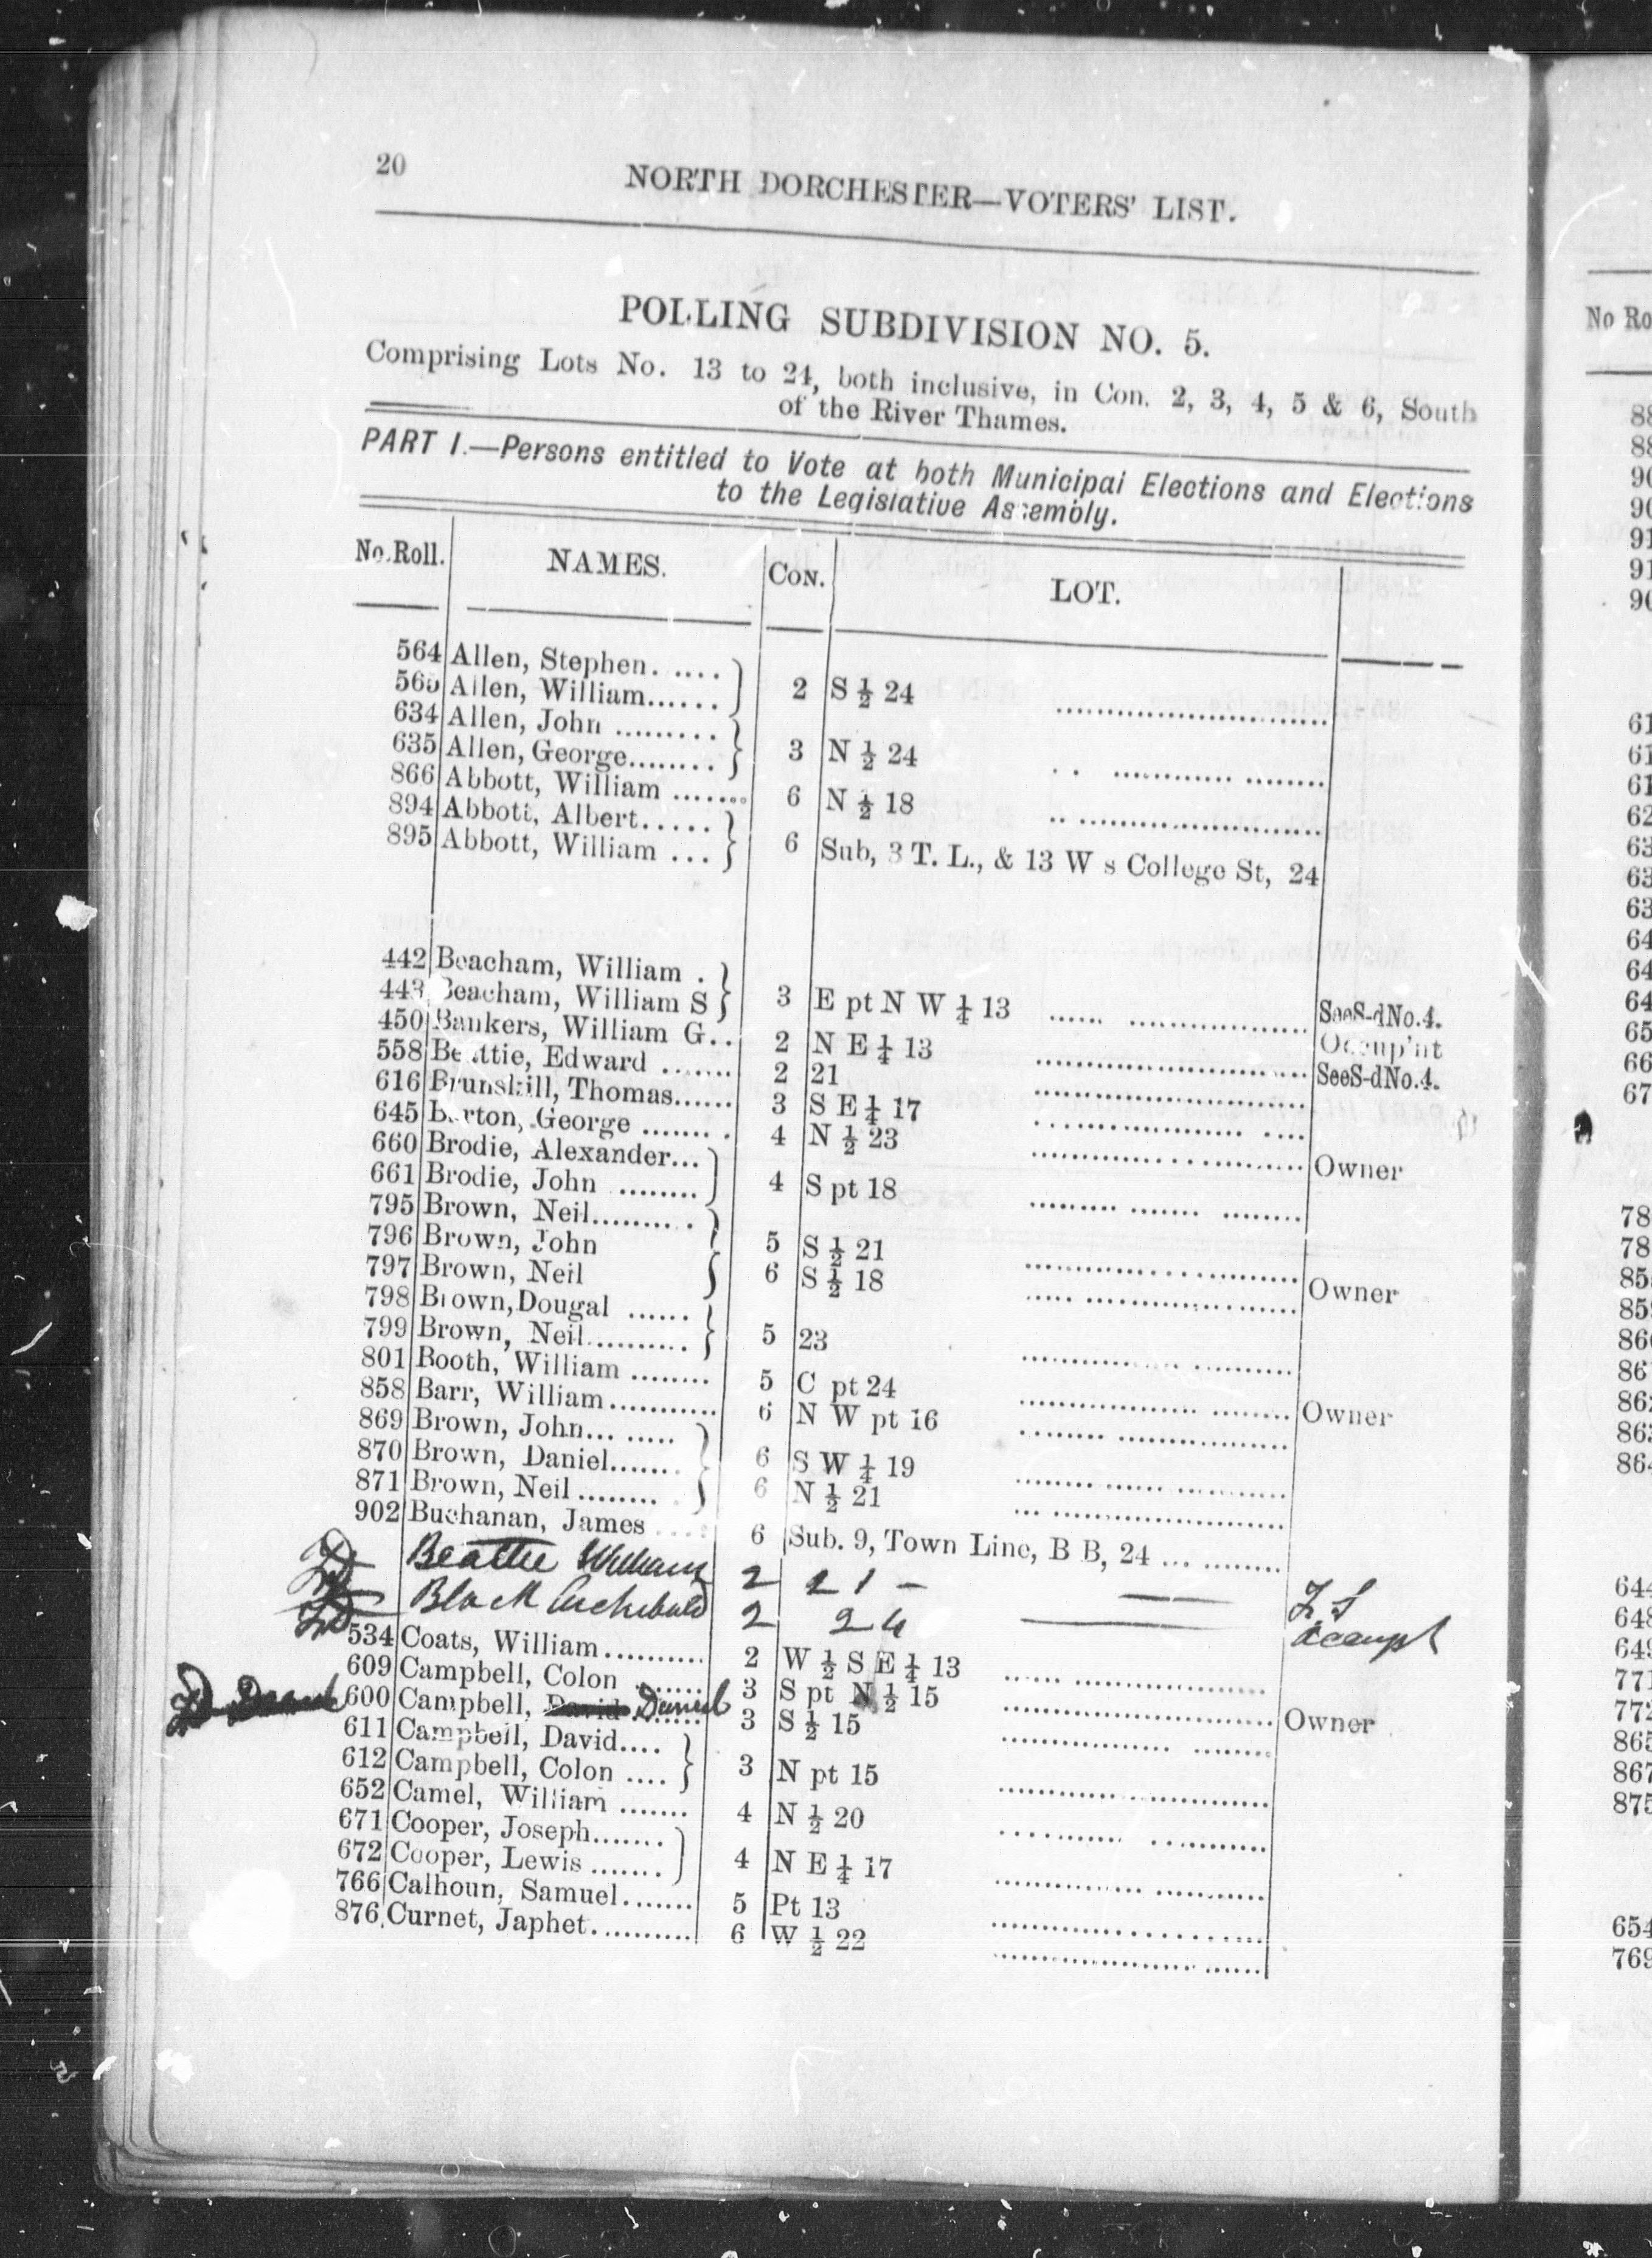 20
NORTH DORCHESTER—VOTERS' LIST.
POLLING SUBDIVISION NO. 5.
Comprising Lots No. 13 to 24, both inclusive, in Con. 2, 3, 4, 5 & 6, South
of the River Thames.
PART I.—Persons entitled to Vote at both Municipal Elections and Elections
to the Legislative Assembly.
No. Roll. NAMES. CON. LOT.
564 Allen, Stephen
565 Allen, William 2 S ½ 24
634 Allen, John
635 Allen, George 3 N ½ 24
866 Abbott, William 6 N ½ 18
894 Abbott, Albert
895 Abbott, William 6 Sub, 3 T. L., & 13 W s College St, 24
442 Beacham, William
443 Beacham, William S 3 E pt N W ¼ 13 SeeS-dNo.4.
450 Bankers, William G 2 N E ¼ 13 Occup'nt
558 Beattie, Edward 2 21 SeeS-dNo.4.
616 Brunskill, Thomas 3 S E ¼ 17
645 Burton, George 4 N ½ 23
660 Brodie, Alexander Owner
661 Brodie, John 4 S pt 18
795 Brown, Neil
796 Brown, John 5 S ½ 21
797 Brown, Neil 6 S ½ 18 Owner
798 Brown, Dougal
799 Brown, Neil 5 23
801 Booth, William 5 C pt 24
858 Barr, William 6 N W pt 16 Owner
869 Brown, John
870 Brown, Daniel 6 S W ¼ 19
871 Brown, Neil 6 N ½ 21
902 Buchanan, James 6 Sub. 9, Town Line, B B, 24
Beattie William 2 21 —
Black Archibald 2 24
534 Coats, William 2 W ½ S E ¼ 13
609 Campbell, Colon 3 S pt N ½ 15
600 Campbell, David Daniel 3 S ½ 15 Owner
611 Campbell, David
612 Campbell, Colon 3 N pt 15
652 Camel, William 4 N ½ 20
671 Cooper, Joseph
672 Cooper, Lewis 4 N E ¼ 17
766 Calhoun, Samuel 5 Pt 13
876 Curnet, Japhet 6 W ½ 22
No Ro